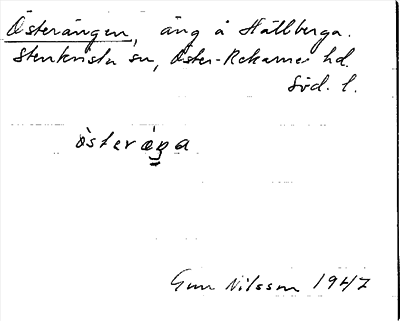 Österängen, äng å Hällberga.
Stenkvista sn, Öster-Rekarne hd.
Söd. l.
österæŋa
Gun Nilsson 1947